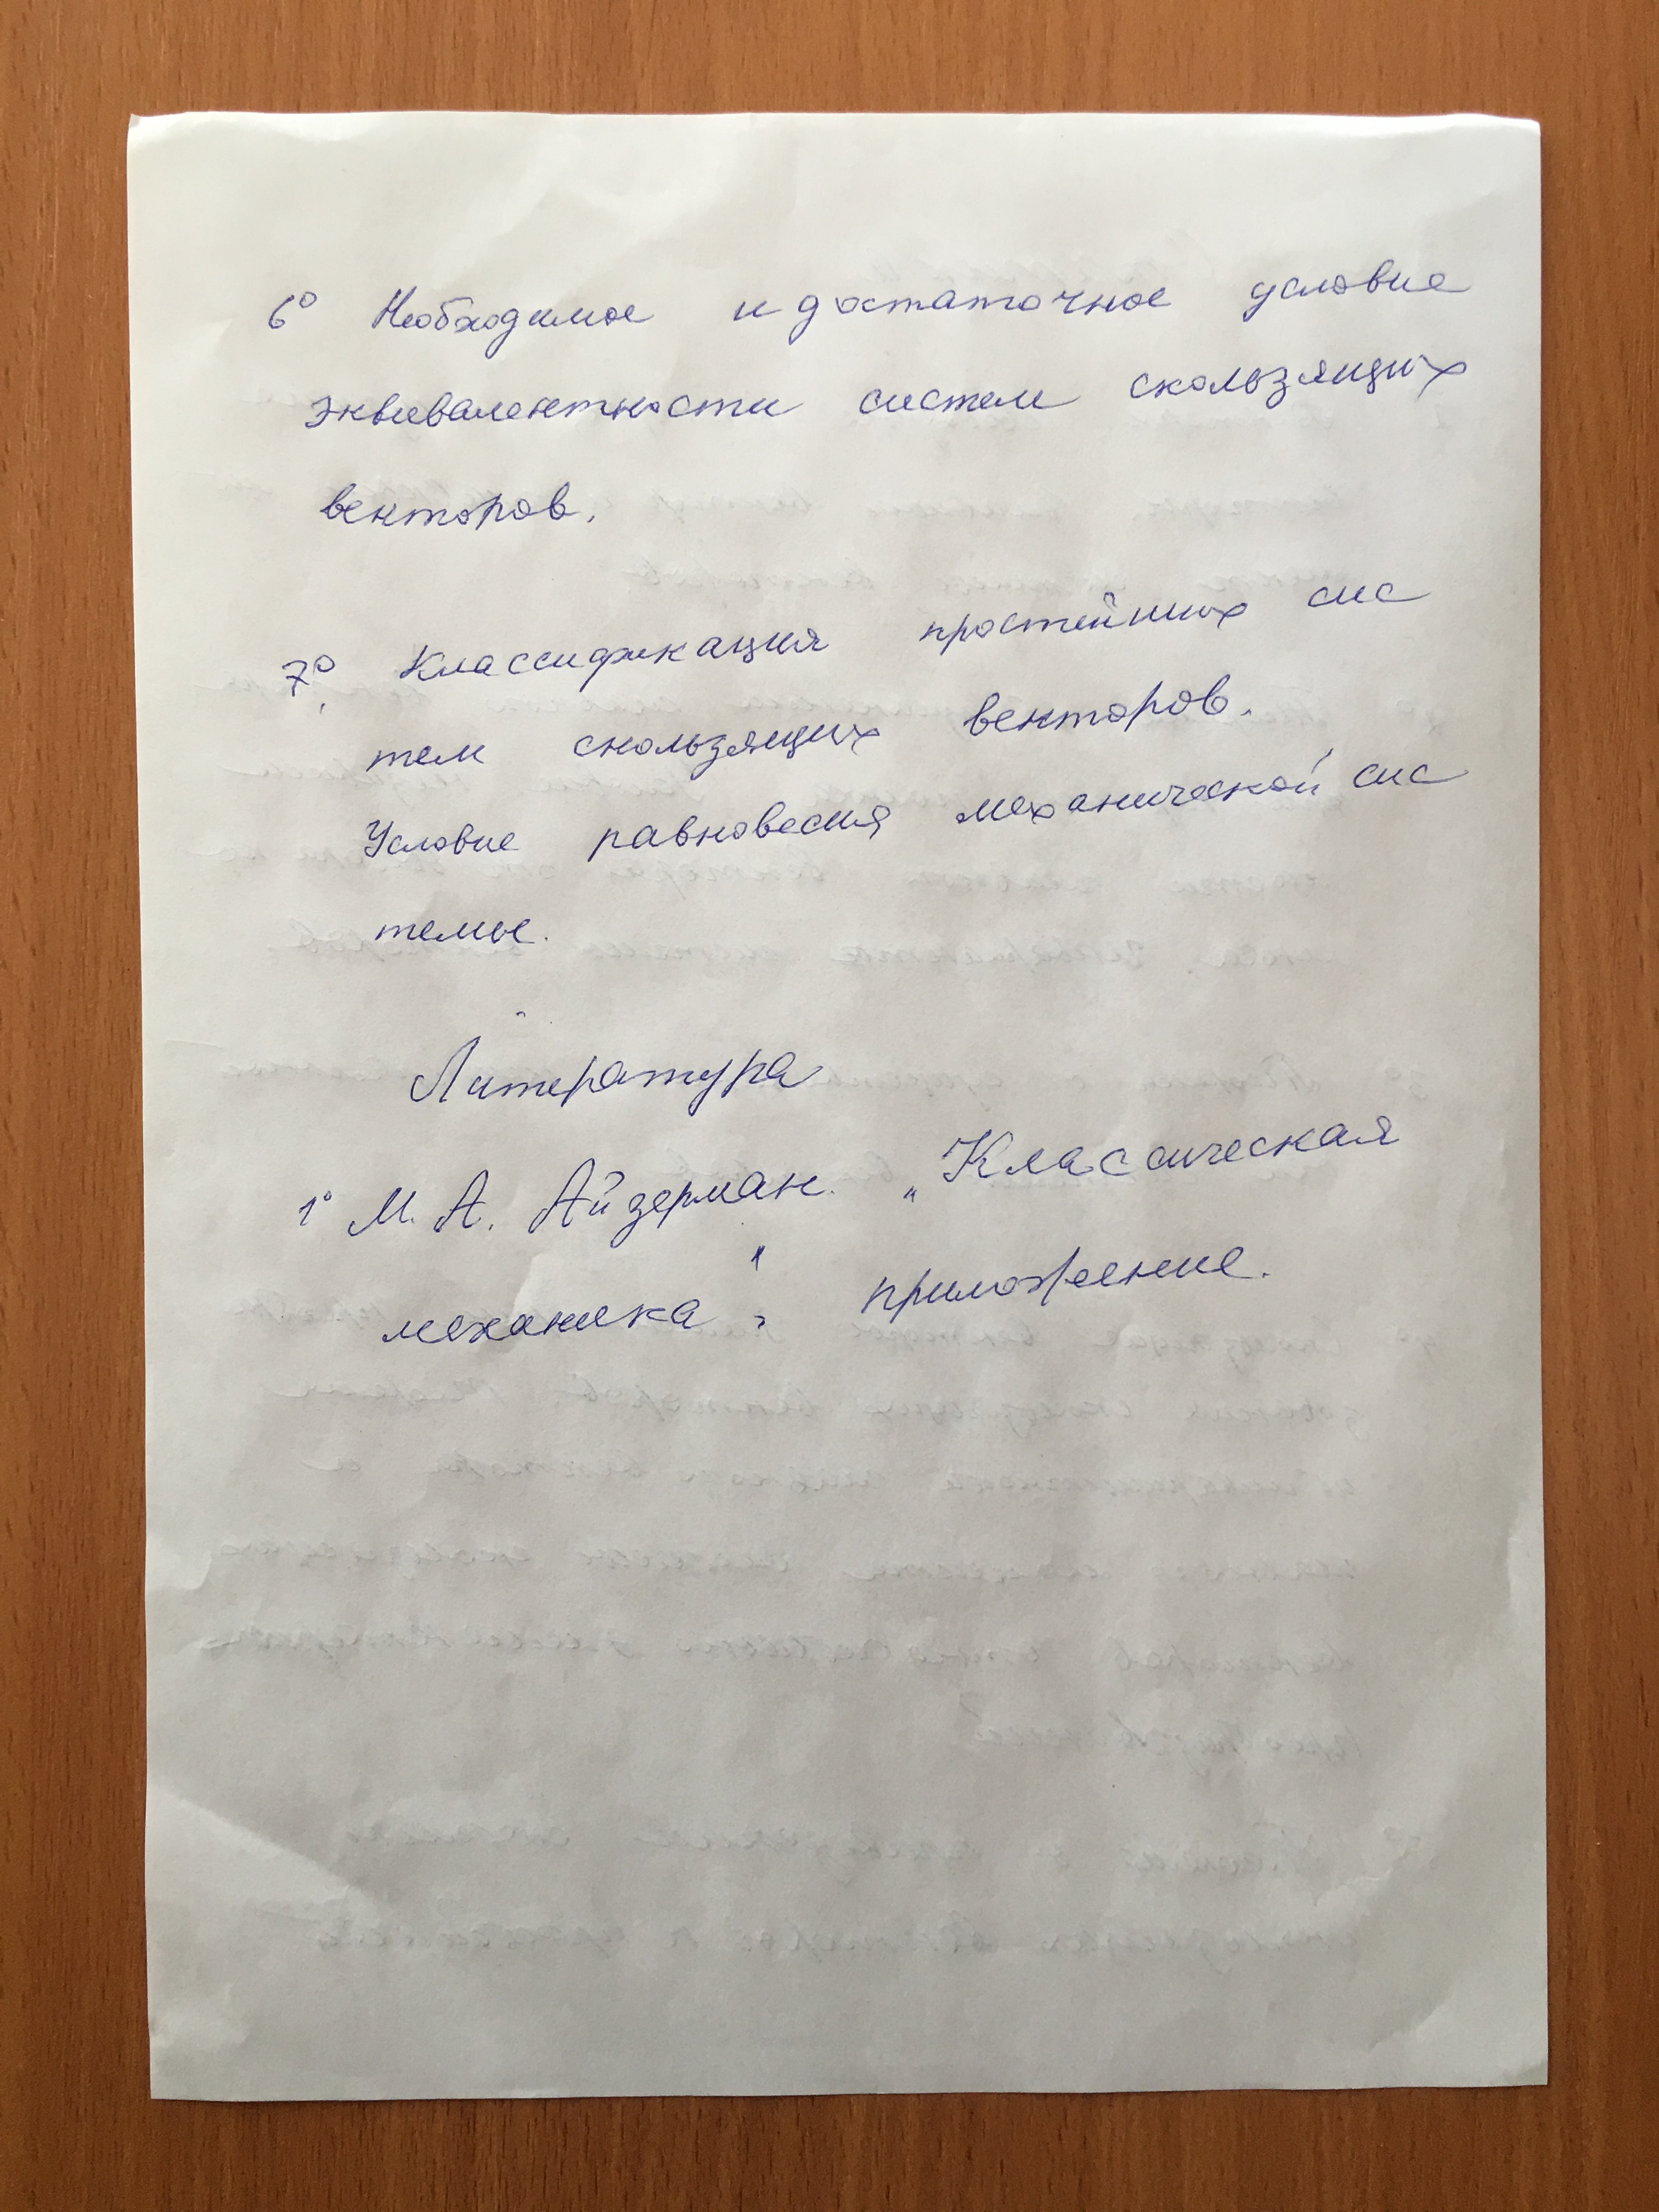 6° Необходимое и достаточное условие
эквивалентности систем скользящих
векторов.
7° Классификация простейших сис
тем скользящих векторов.
Условие равновесия механической сис
темы.
Литература
1° М. А. Айзерман. „Классическая
механика", приложение.